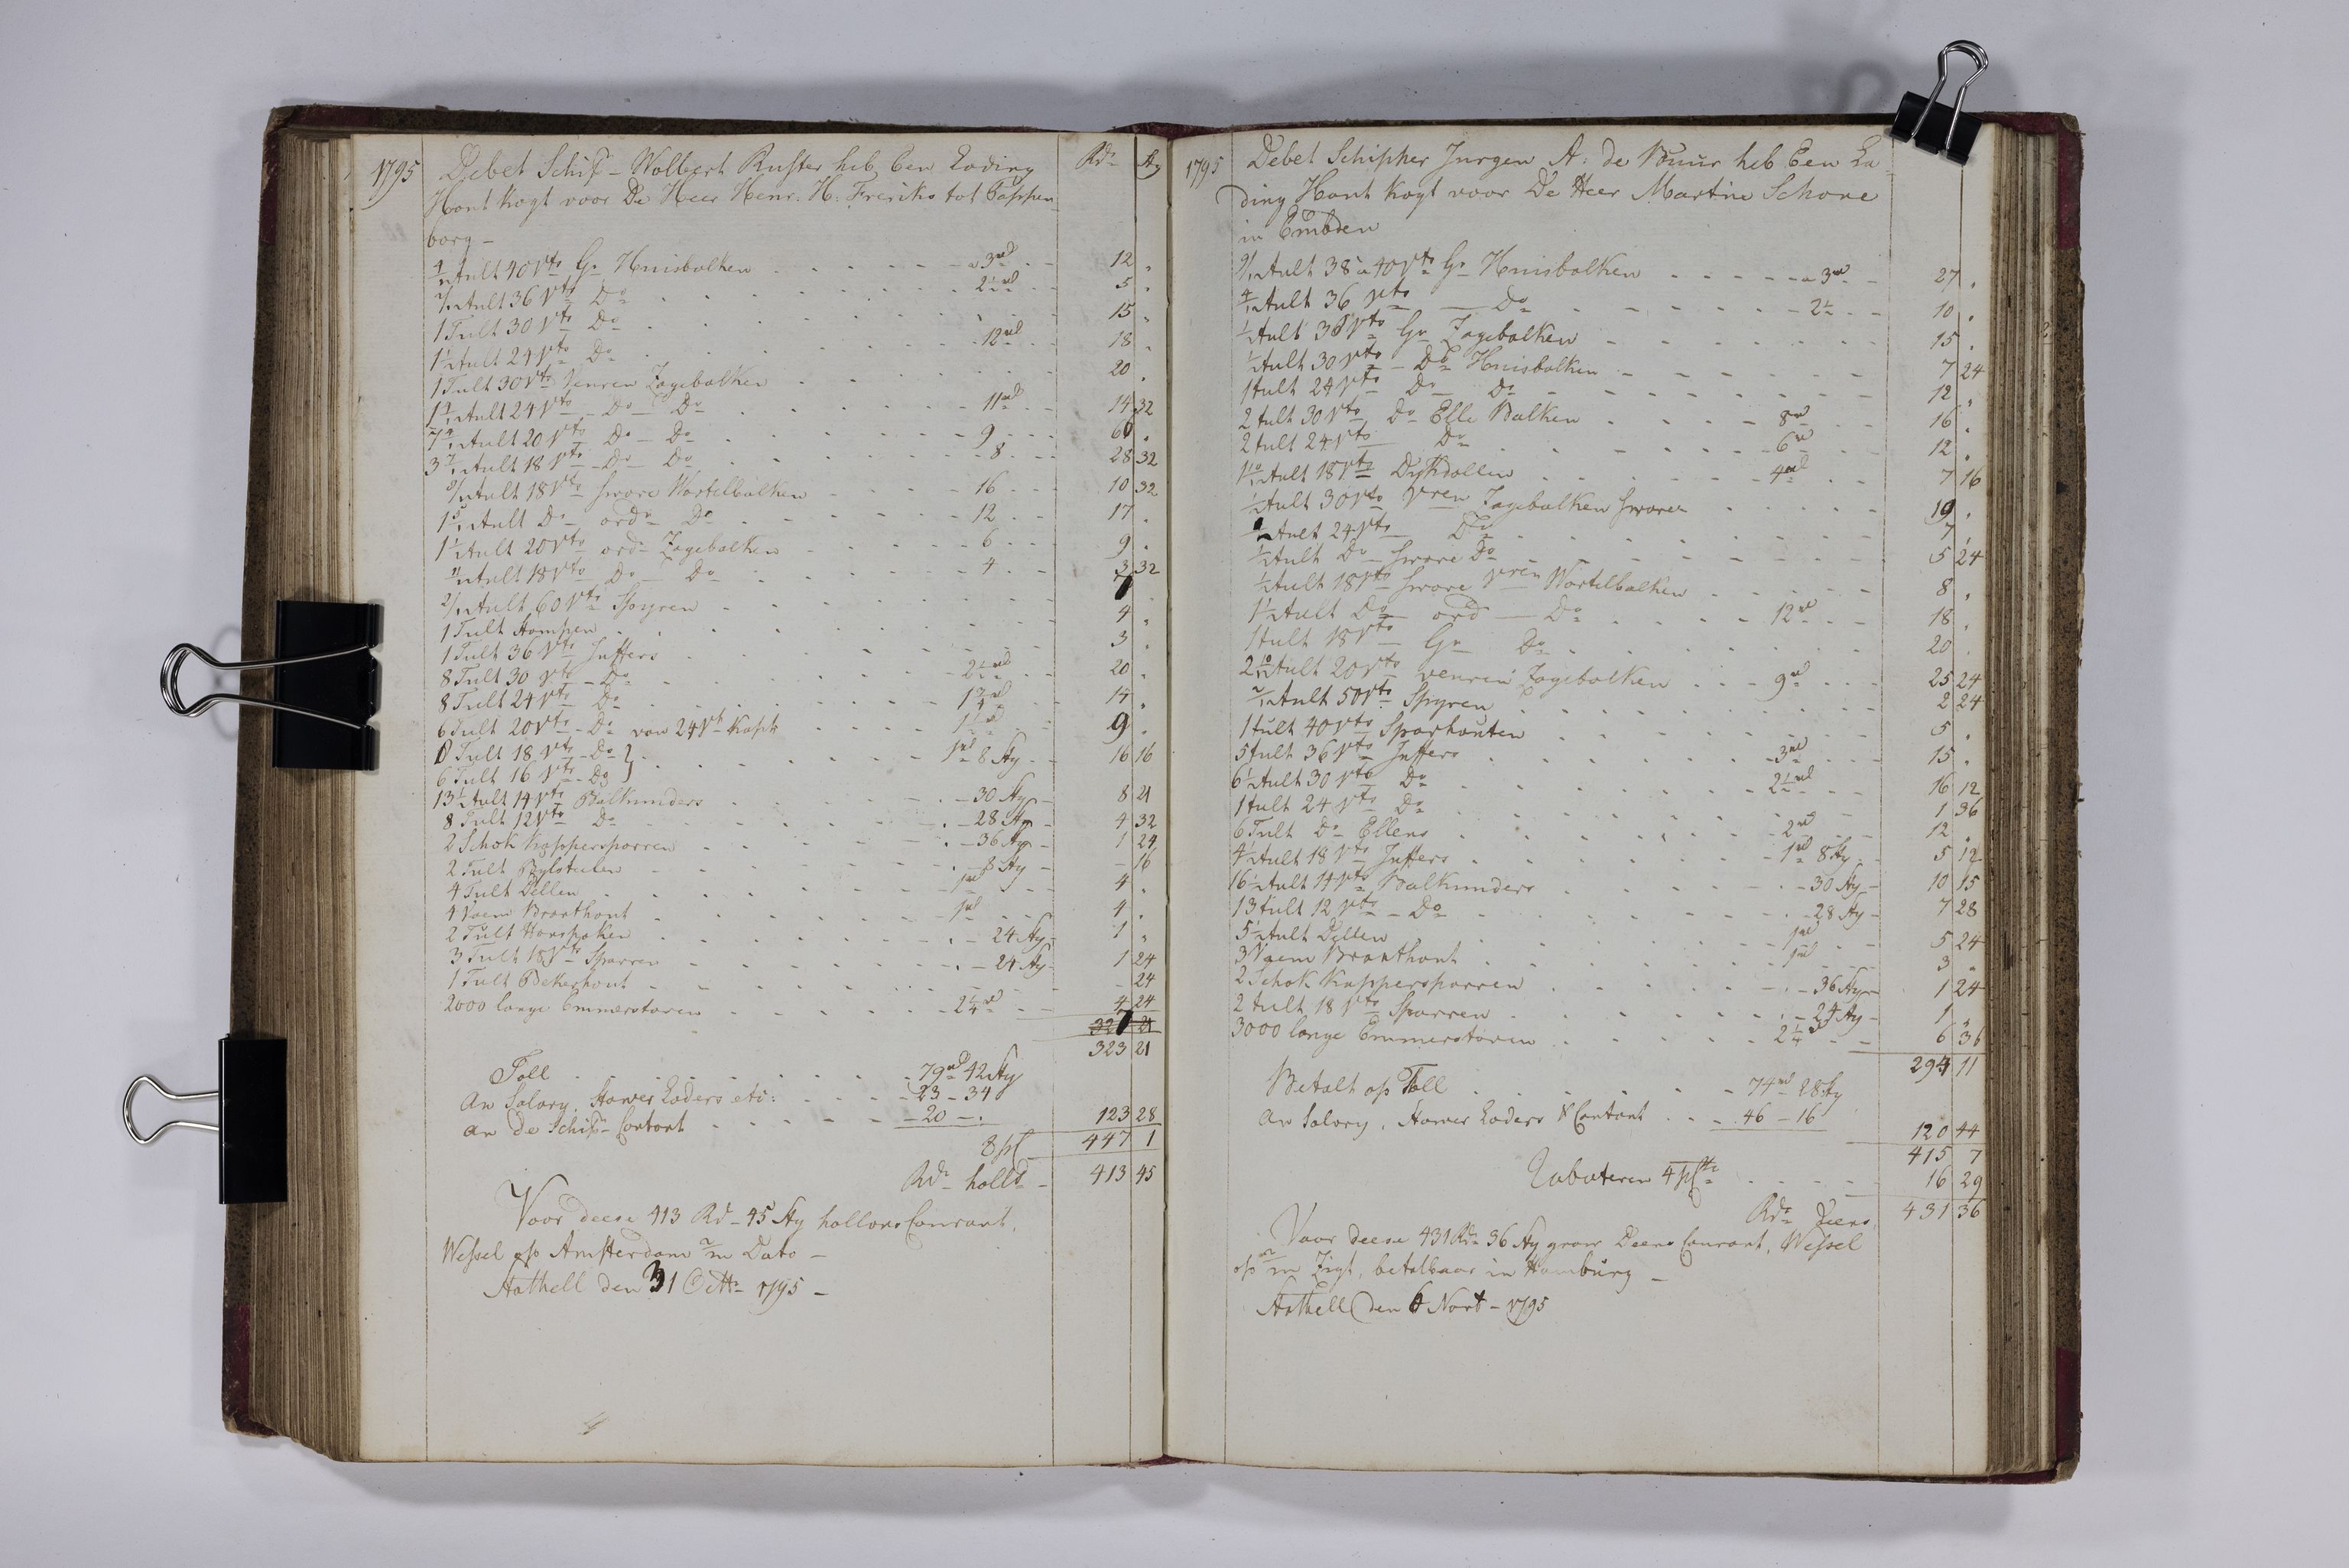 1795 Debet Schip- Wolbert Kuster heb Een Lading Rd. Sty
Hout kogt voor De Heer Henr. H: Freriks tot Pappen
borg -
4/12 tult 40 Vts Gr Huisbalken a 3rd 12 .
2/12 tult 36 Vts Do 2½rd 5 .
1 Tult 30 Vts Do 15 .
1½ tult 24 Vts Do 12rd 18 .
1 Tult 30 Vts Veuren Zagebalken 20 .
1 4/12 tult 24 Vts Do Do 11rd 14 32
7 tult 20 Vts Do - Do 9 .
3 7/12 tult 18 Vts Do Do 8 28 32
8/12 tult 18 Vts swore Wortelbalken 16 10 32
1 5/12 tult Do ordr Do 12 17 .
1½ tult 20 Vts ordr Zagebalken 6 9 .
11/12 tult 18 Vts Do Do 4 3 32
2/12 tult 60 Vts Spyren
1 Tult Stompen 4 .
1 Tult 36 Vts Juffers 3 .
8 Tult 30 Vts Do 2½rd 20 .
8 Tult 24 Vts Do 1¾rd 14 .
6 Tult 20 Vts Do van 24 Vt kapt 1½rd 9 .
8 Tult 18 Vts Do } 1rd 8 Sty 16 16
6 Tult 16 Vts Do }
13½ tult 14 Vts Balkunders 30 Sty 8 21
8 Tult 12 Vts Do 28 Sty 4 32
2 Schok Kappersporren 36 Sty 1 24
2 Tult Bylsteelen 8 Sty - 16
4 Tult Dellen 1rd 4 .
4 Vaem Branthout 1rd 4 .
2 Tult Hanspaken 24 Sty 1 .
3 Tult 18 Vts Sparren 24 Sty 1 24
1 Tult Bekerhout - 24
2000 lange Emmerstaven 2¼rd 4 24
323 21
Toll 79rd 42 Sty
an Salary, Stower Laders etc: 23 - 34
an de Schipr Contant 20 - . 123 28
8 pC 447 1
Rdr holld 413 45
Voor deese 413 Rd - 45 Sty hollans Courant,
Wessel op Amsterdam 2/m Dato -
Stathell den 31 Octr 1795 -
1795 Debet Schipher Jurgen A: de Buur heb Een La
ding Hout kogt voor De Heer Martin Schone
in Embden
9/12 tult 38 a 40 Vts Gr Huisbalken a 3rd 27 .
4/12 tult 36 Vts Do 2½ 10 .
½ tult 38 Vts Gr Zagebalken 15 .
½ tult 30 Vts Do Huisbalken 7 24
1 tult 24 Vts Do Do 12 .
2 tult 30 Vts Do Elle Balken 8rd 16 .
2 tult 24 Vts Do 6rd 12 .
1 10/12 tult 18 Vts Dykdollen 4rd 7 16
½ tult 30 Vts Vren Zagebalken swore 19 .
½ tult 24 Vts Do 7 .
½ tult Do swore Do 5 24
½ tult 18 Vts swore Vren Wortelbalken 8 .
1½ tult Do ord Do 12rd 18 .
1 tult 18 Vts Gr Do 20 .
2 10/12 tult 20 Vts veuren Zagebalken 9rd 25 24
tult 50 Vts Spyren 2 24
1 tult 40 Vts Sparhouten 5 .
5 tult 36 Vts Juffers 3rd 15 .
6½ tult 30 Vts Do 2½rd 16 12
1 tult 24 Vts Do 1 36
6 Tult Do Ellens 2rd 12 .
4½ tult 18 Vts Juffers 1rd 8 Sty 5 12
16½ tult 14 Vts Balkunders 30 Sty 10 15
13 tult 12 Vts Do 28 Sty 7 28
5½ tult Dellen 1rd 5 24
3 Vaem Branthout 1rd 3 .
2 Schok Kappersporren 36 Sty 1 24
2 tult 18 Vts Sparren 24 Sty 1 .
3000 lange Emmerstaven 2¼ 6 36
294 11
Betalt op Toll 74rd 28 Sty
an Salary, Stower Laders & Contant 46 - 16
120 44
415 7
Rabateren 4 pCto 16 29
Rdr Deens 431 36
Voor deese 431 Rdr 36 Sty grow Deens Courant, Wessel
op 2/m Zigt, betalbaar in Hamburg -
Stathell den 6 Novt - 1795